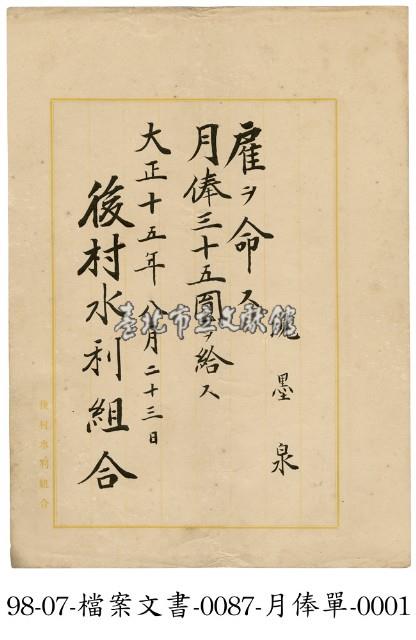 墨泉
雇ヲ命ス
月俸三十五圓ヲ給ス
大正十五年八月二十三日
後村水利組合
後村水利組合
臺北市立文獻館
98-07-檔案文書-0087-月俸單-0001